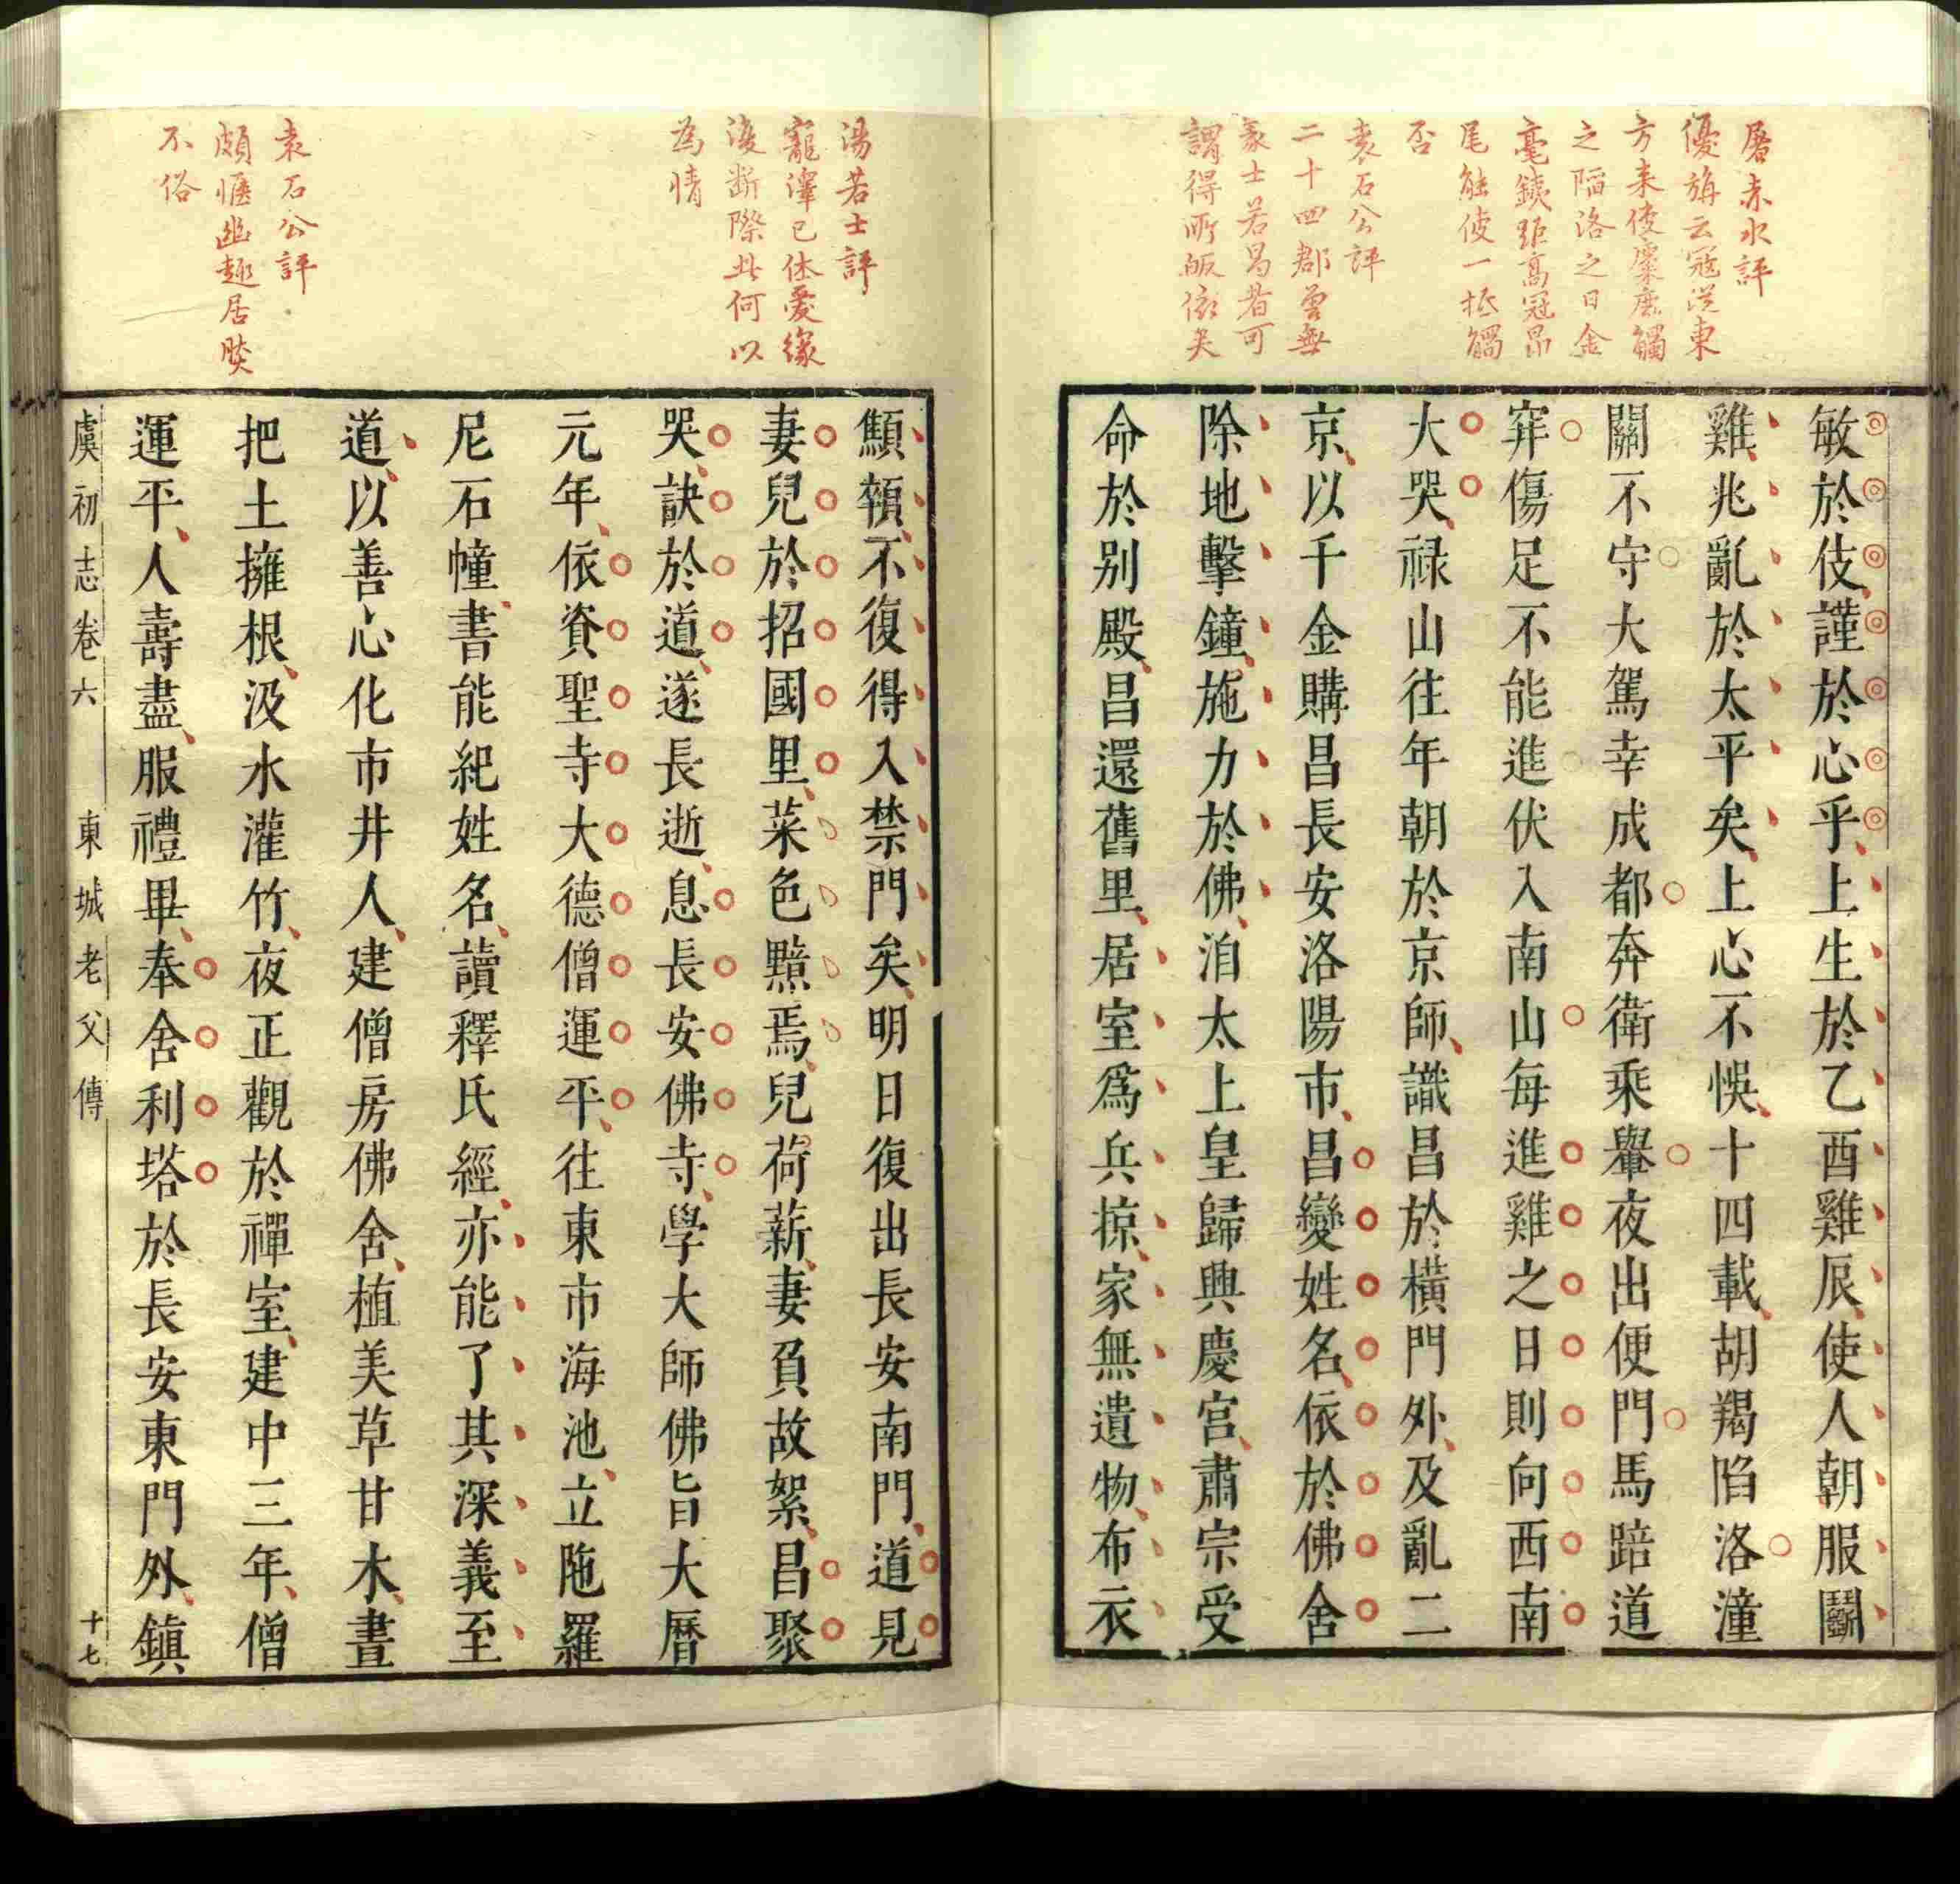 屠赤水評
優旃云寇從東
方来使麋鹿觸
之陷洛之日金
毫鐵距高冠昂
尾能使一抵觸
否
袁石公評
二十四郡曾無
義士若昌者可
謂得所皈依矣
敏於伎謹於心乎上生於乙酉雞辰使人朝服鬭
雞兆亂於太平矣上心不悞十四載胡羯陷洛潼
關不守大駕幸成都奔衛乘轝夜出便門馬踣道
穽傷足不能進伏入南山每進雞之日則向西南
大哭禄山往年朝於京師識昌於橫門外及亂二
京以千金購昌長安洛陽市昌變姓名依於佛舍
除地擊鐘施力於佛洎太上皇歸興慶宫肅宗受
命於别殿昌還舊里居室爲兵掠家無遺物布衣
湯若士評
寵澤已休愛緣
復斷際此何以
為情
袁石公評
頗愜幽趣居賸
不俗
顦顇不復得入禁門矣明日復出長安南門道見
妻兒於招國里菜色黯焉兒荷薪妻負故絮昌聚
哭訣於道遂長逝息長安佛寺學大師佛旨大曆
元年依資聖寺大德僧運平往東市海池立陁羅
尼石幢書能紀姓名讀釋氏經亦能了其深義至
道以善心化市井人建僧房佛舍植美草甘木晝
把土擁根汲水灌竹夜正觀於禪室建中三年僧
運平人壽盡服禮畢奉舍利塔於長安東門外鎮
虞初志卷六 東城老父傳 十七